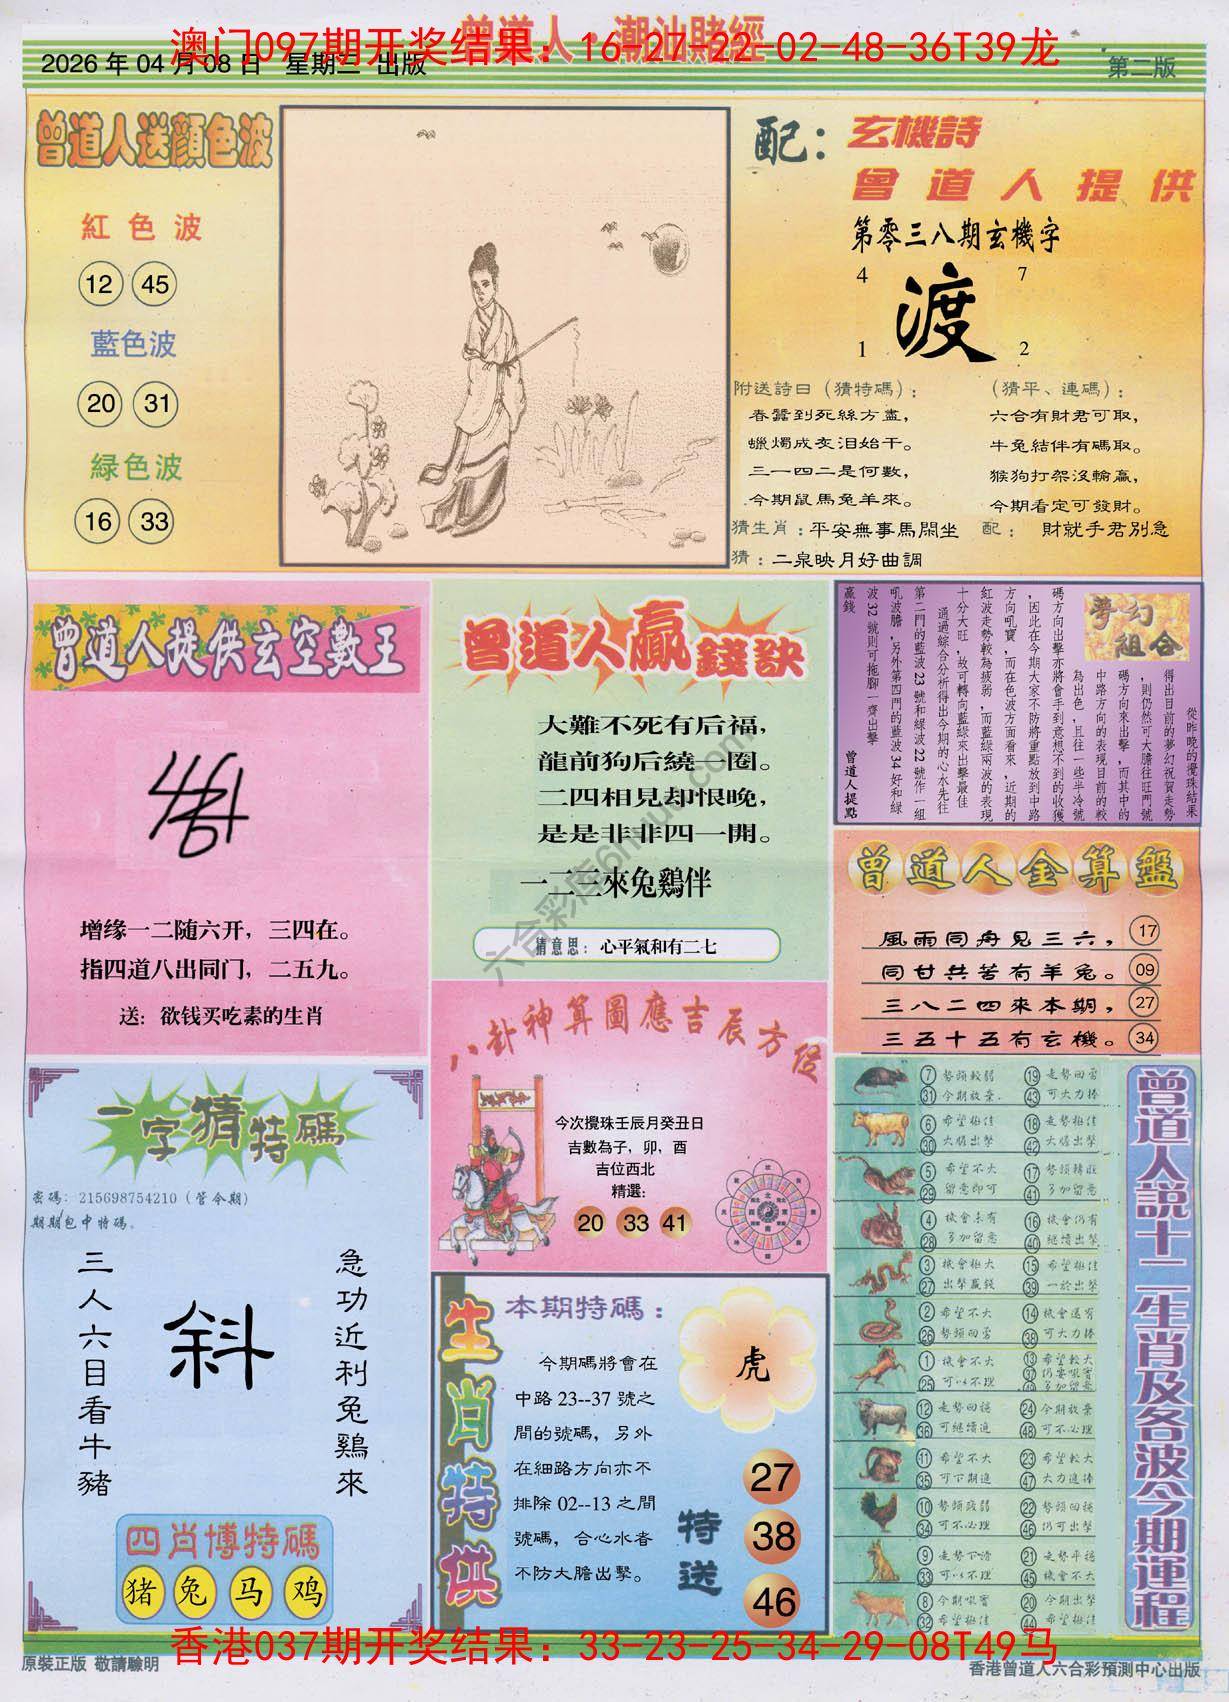 曾道人·潮汕賭經
澳门097期开奖结果：16-27-22-02-48-36T39龙
2026 年 04 月 08 日 星期三 出版
第二版
曾道人送顏色波
紅色波
12 45
藍色波
20 31
緑色波
16 33
配：玄機詩
曾道人提供
第零三八期玄機字
4 7
渡
1 2
附送詩曰（猜特碼）：
春蠶到死絲方盡，
蠟燭成灰泪始干。
三一四二是何數，
今期鼠馬兔羊來。
（猜平、連碼）：
六合有財君可取，
牛兔結伴有碼取。
猴狗打架沒輪贏，
今期看定可發財。
猜生肖：平安無事馬閑坐 配： 財就手君別急
猜：二泉映月好曲調
曾道人提供玄空數王
增缘一二随六开，三四在。
指四道八出同门，二五九。
送：欲钱买吃素的生肖
曾道人贏錢訣
大難不死有后福，
龍前狗后繞一圈。
二四相見却恨晚，
是是非非四一開。
一二三來兔鷄伴
猜意思：心平氣和有二七
夢幻組合
從昨晚的攪珠結果
得出目前的夢幻祝賀走勢
，則仍然可大膽往旺門號
碼方向來出擊，而其中的
中路方向的表現目前的較
為出色，且往一些半冷號
碼方向出擊亦將會手到意想不到的收獲
，因此在今期大家不防將重點放到中路
方向吼寶，而在色波方面看來，近期的
紅波走勢較為疲弱，而藍緑兩波的表現
十分大旺，故可轉向藍緑來出擊最佳
通過綜合分析得出今期的心水先往
第二門的藍波23號和緑波22號作一組
吼波膽，另外第四門的藍波34好和緑
波32號則可拖腳一齊出擊
贏錢 曾道人提點
曾道人金算盤
風雨同舟見三六， 17
同甘共苦有羊兔。 09
三八二四來本期， 27
三五十五有玄機。 34
八卦神算圖應吉辰方位
今次攪珠壬辰月癸丑日
吉數為子，卯，酉
吉位西北
精選：
20 33 41
一字猜特碼
密碼：215698754210（管令期）
期期包中特碼。
三人六目看牛豬
斜
急功近利兔鷄來
四肖博特碼
猪 兔 马 鸡
生肖特供
本期特碼：
今期碼將會在
中路 23--37 號之
間的號碼，另外
在細路方向亦不
排除 02--13 之間
號碼，合心水者
不防大膽出擊。
虎
特送
27
38
46
曾道人説十二生肖及各波今期運程
7 勢頭較弱 19 走勢回雷
31 今期放棄. 43 可大力捧
6 希望極佳 18 走勢極佳
30 大膽出擊 42 大膽出擊
5 希望不大 17 勢頭轉旺
29 留意即可 41 多加留意
4 機會未有 16 機會仍有
28 多加留意 40 繼續出擊
3 機會極大 15 希望極佳
27 出擊贏錢 39 一於出擊
2 希望不大 14 機會還有
26 勢頭回雷 38 可大力捧
1 機會不大 13 希望較大
25 可以不理 37 仍要吼實
49 多加留意
12 走勢回穩 24 今期放棄
36 可繼續追 48 可不必理
11 希望不大 23 希望較大
35 可下期追 47 大力追捧
10 勢頭疲弱 22 勢頭回穩
34 可不必理 46 仍可出擊
9 走勢下滑 21 走勢平穩
33 可以不理 45 機會不大
8 今期吼實 20 今期出擊
32 希望極佳 44 希望極佳
六合彩库6hwuu.com
香港037期开奖结果：33-23-25-34-29-08T49马
原裝正版 敬請驗明
香港曾道人六合彩預測中心出版